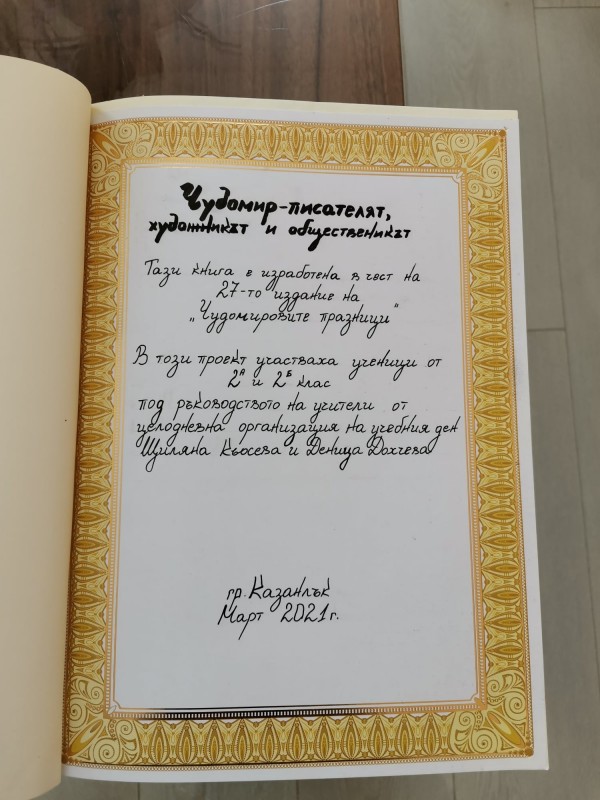 Чудомир-писателят,
художникът и общественикът
Тази книга е изработена в чест на
27-то издание на
„Чудомировите празници"
В този проект участваха ученици от
2А и 2Б клас
под ръководството на учители от
целодневна организация на учебния ден
Щиляна Кьосева и Деница Дохчева
гр. Казанлък
Март 2021г.